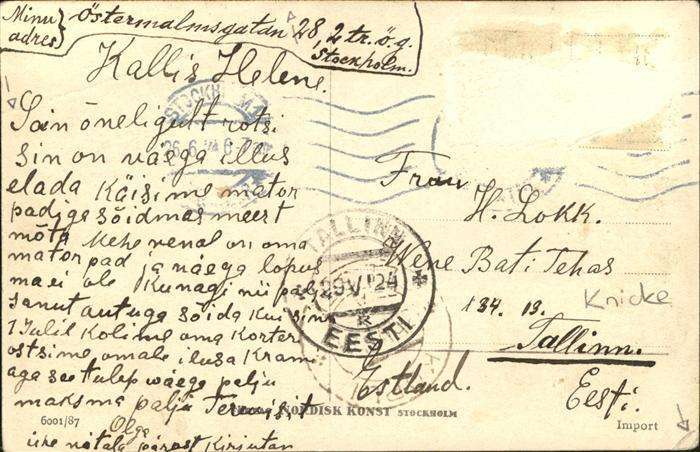 Minu
adres}
Östermalmsgatan 28, 2 tr. ö.g.
Stockholm.
Kallis Helene.
Sain õneligult rotsi
sin on väega illus
elada Käisime mator
padiga sõidmas meest
mõtă Mehe venal on oma
mator pad ja väega lopus
ma ei ole Kunagi nii palj
sanut autuga sõida kui sin
1 Julil Kolime oma Korteri
ostsime omale ilusa Kram
aga see tulep wäega palju
maksma palju Tervisit
Olga
ühe nätala pärast Kirjutan
STOCKHOLM
26.6.24
Frau
H. Lokk.
Wene Bati Tehas
k 34. 13.
Knicke
Tallinn.
Estland.
Eesti.
TALLINN
29 VI '24
K
EESTI
NORDISK KONST STOCKHOLM
6001/87
Import